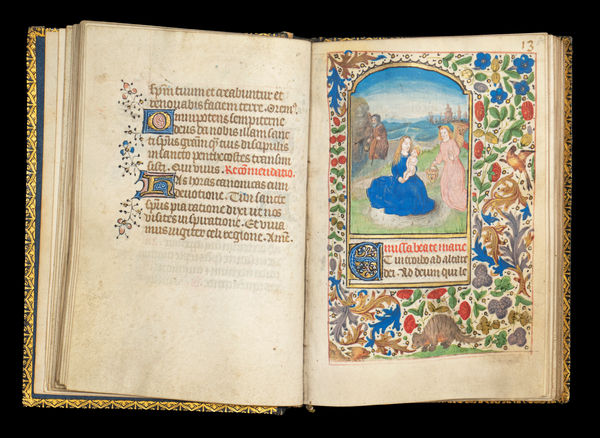 sp̄m tuum et creabuntur et
renouabis faciem terre. Orem9
Omnipotens sempiterne
deus da nobis illam sanc
ti sp̄us grām q̄ tuis discipulis
in sancto penthecostes transmi
sisti. Qui viuis. Recōmendatio.
Has horas canonicas cum
deuotione. Tibi sancte
sp̄us pia ratione dixi ut nos
visites inspiratione. Et viua
mus iugiter celi regione. Amē.
13
missa beate marie
Introibo ad altare
dei. Ad deum qui le